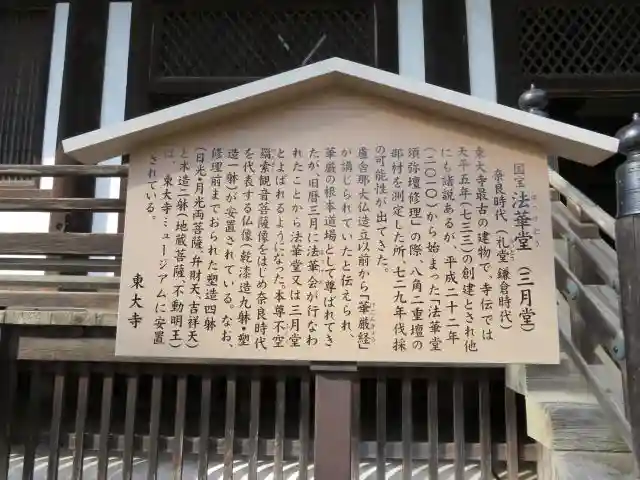 国宝 法華堂(三月堂)
ほっけどう
奈良時代(礼堂・鎌倉時代)
東大寺最古の建物で、寺伝では
天平五年(七三三)の創建とされ他
にも諸説あるが、平成二十二年
(二〇一〇)から始まった「法華堂
須弥壇修理」の際、八角二重壇の
部材を測定した所、七二九年伐採
の可能性が出てきた。
盧舎那大仏造立以前から「華厳経」
が講じられていたと伝えられ、
華厳の根本道場として尊ばれてき
たが、旧暦三月に法華会が行なわ
れたことから法華堂又は三月堂
とよばれるようになった。本尊不空
羂索観音菩薩像をはじめ奈良時代
を代表する仏像(乾漆造九躰・塑
造一躰)が安置されている。なお、
修理前までおられた塑造四躰
(日光・月光両菩薩、弁財天、吉祥天)
と木造二躰(地蔵菩薩、不動明王)
は、東大寺ミュージアムに安置
されている。
東大寺